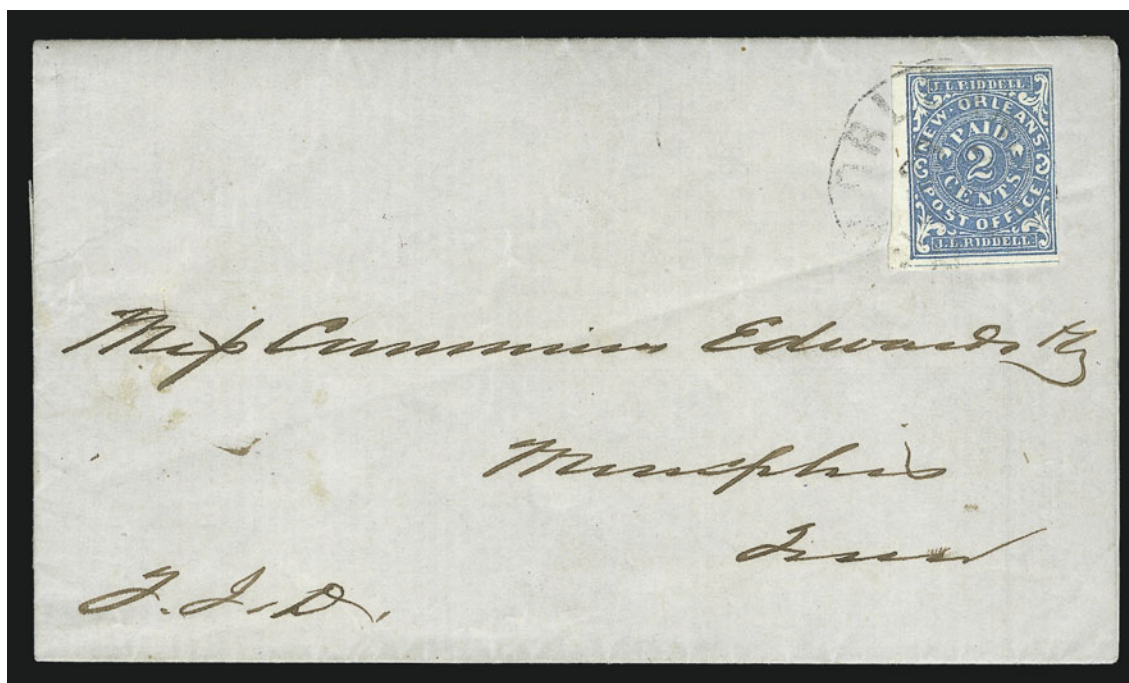 J.L.RIDDELL
NEW·ORLEANS
PAID
2
CENTS
POST OFFICE
J.L.RIDDELL
ORL
Cummins Edwards
Memphis
Tenn
J. J. D.